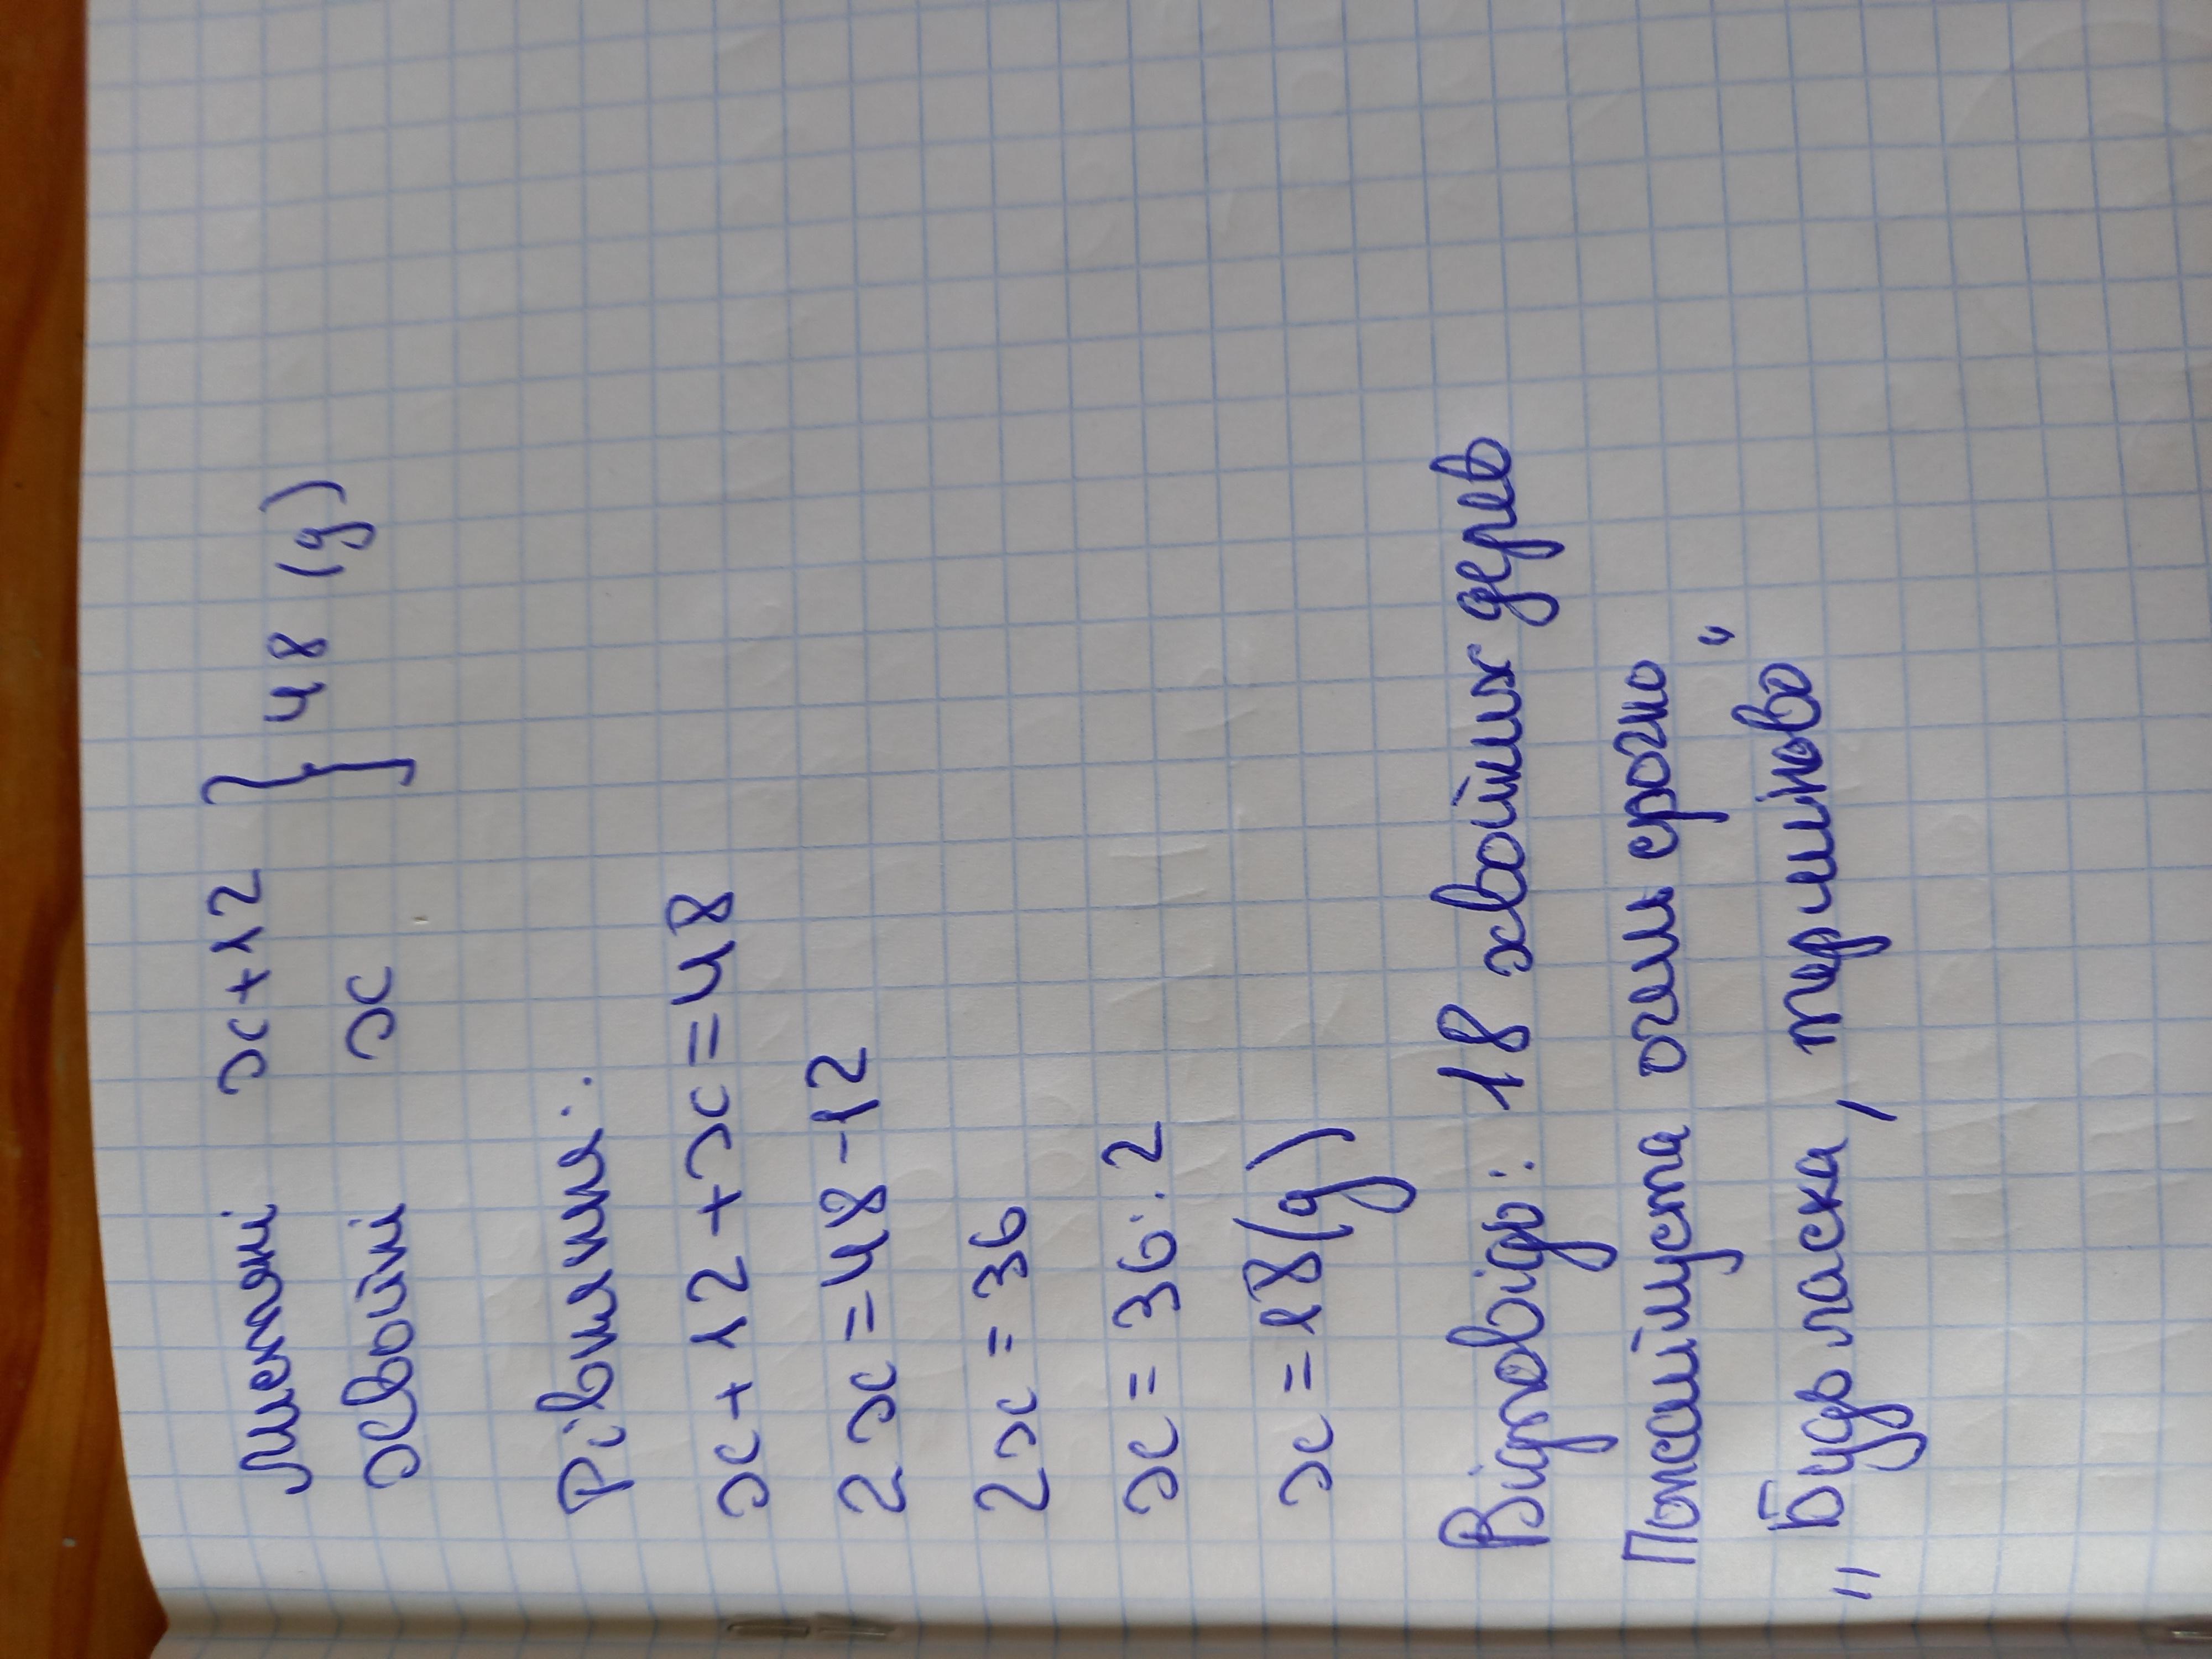 Листяні x+12 } 48 (д)
хвойні x
Рівняння:
x+12+x=48
2x=48-12
2x=36
x=36:2
x=18(д)
Відповідь: 18 хвойних дерев
Пожалйуста очень срочно
„Будь ласка, терміново"